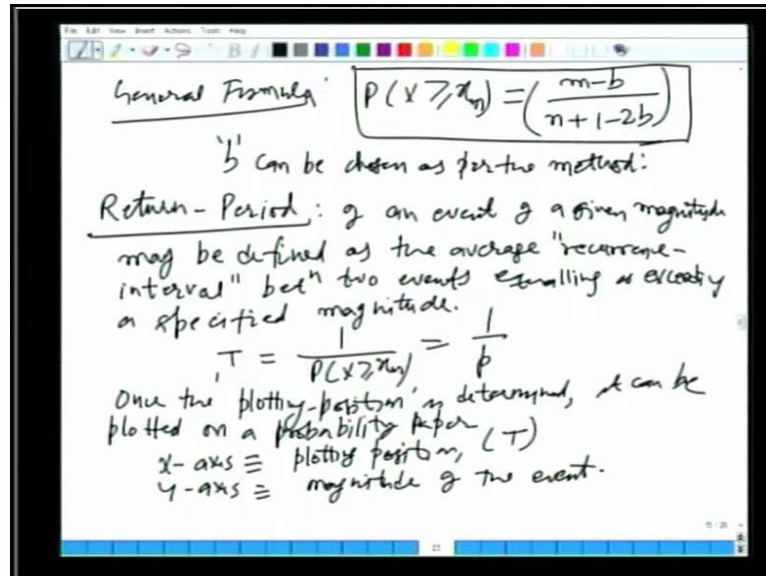 File Edit View Insert Actions Tools Help
General Formula P(X ⩾ xm) = (m-b / n+1-2b)
'b' can be chosen as per the method:
Return-Period: of an event of a given magnitude
may be defined as the average "recurrence-
interval" betn two events equalling or exceeding
a specified magnitude.
T = 1 / P(X ⩾ xm) = 1 / p
Once the 'plotting-position' is determined, it can be
plotted on a probability paper
x-axis ≡ plotting position, (T)
y-axis ≡ magnitude of the event.
23